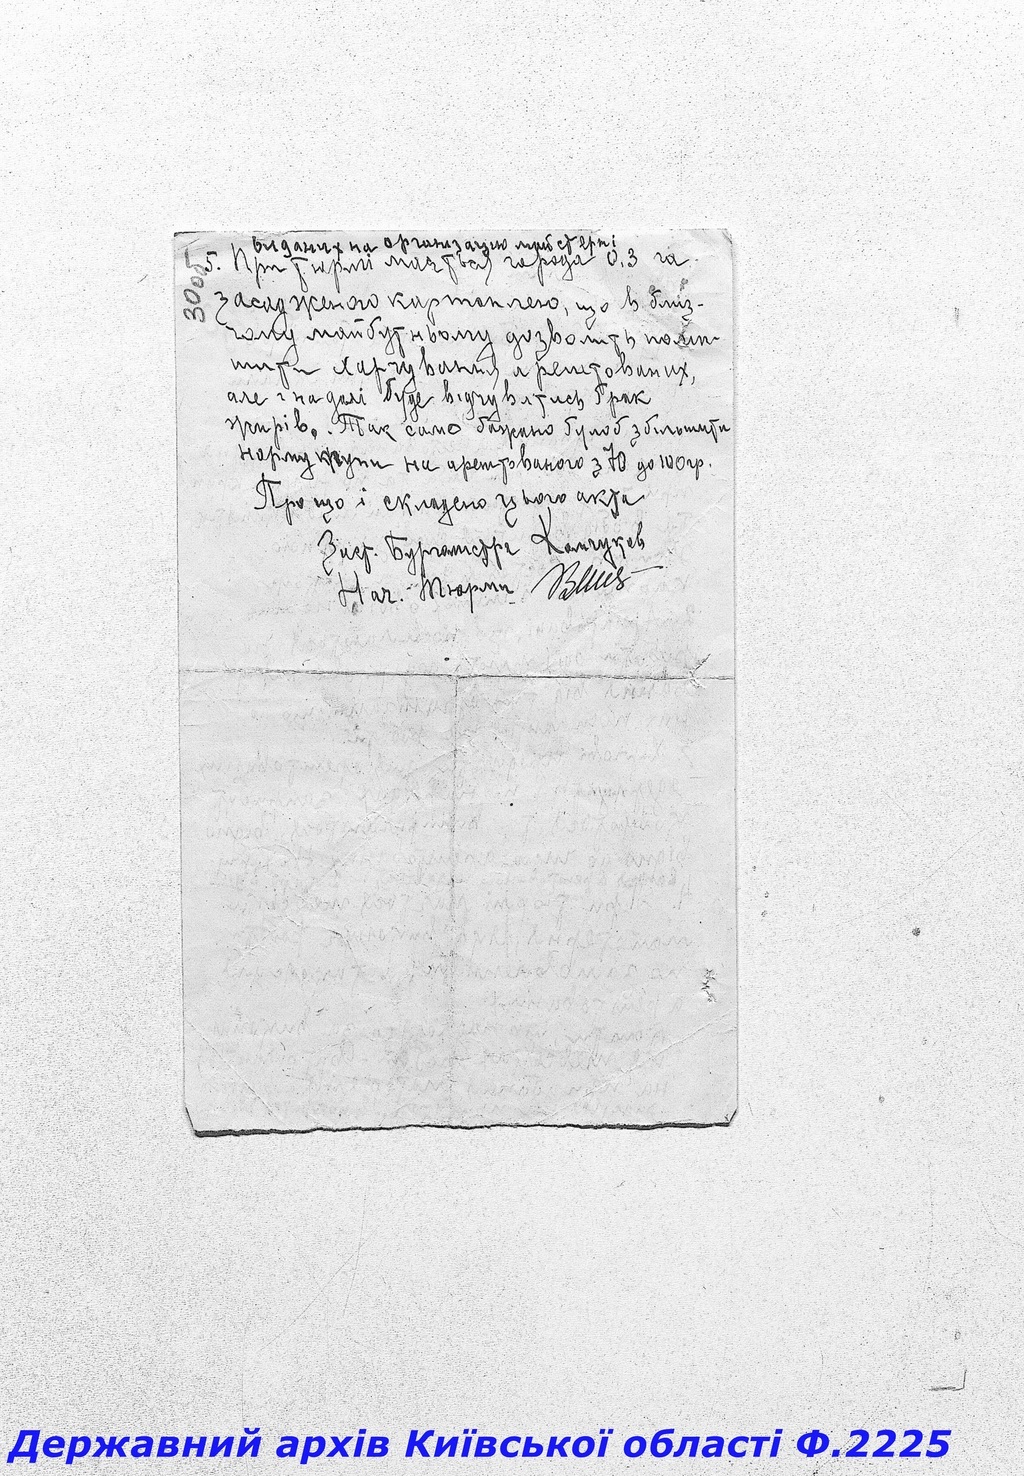 виданих на організацію майстерні
30 об
5. При тюрмі мається города 0.3 га
засадженого картоплею, що в близ-
чому майбутньому дозволить поліп-
шити харчування арештованих,
але і надалі буде відчуватись брак
жирів. Так само бажано булоб збільшити
норму крупи на арештованого з 70 до 100 гр.
Про що і складено цього акта
Заст. Бургомістра
Нач. Тюрми
Державний архів Київської області Ф.2225